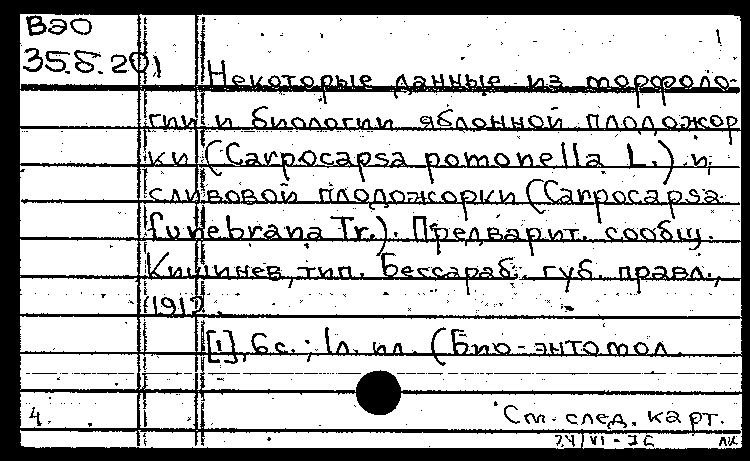 ВэО
35.8.201
1
Некоторые данные из морфоло-
гии и биологии яблонной плодожор
ки (Carpocapsa pomonella L.) и
сливовой плодожорки (Carpocapsa
funebrana Tr.). Предварит. сообщ.
Кишинев, тип. Бессараб. губ. правл.,
1912.
[1], 6с.; 1л. ил. (Био-энтомол.
4 См. след. карт.